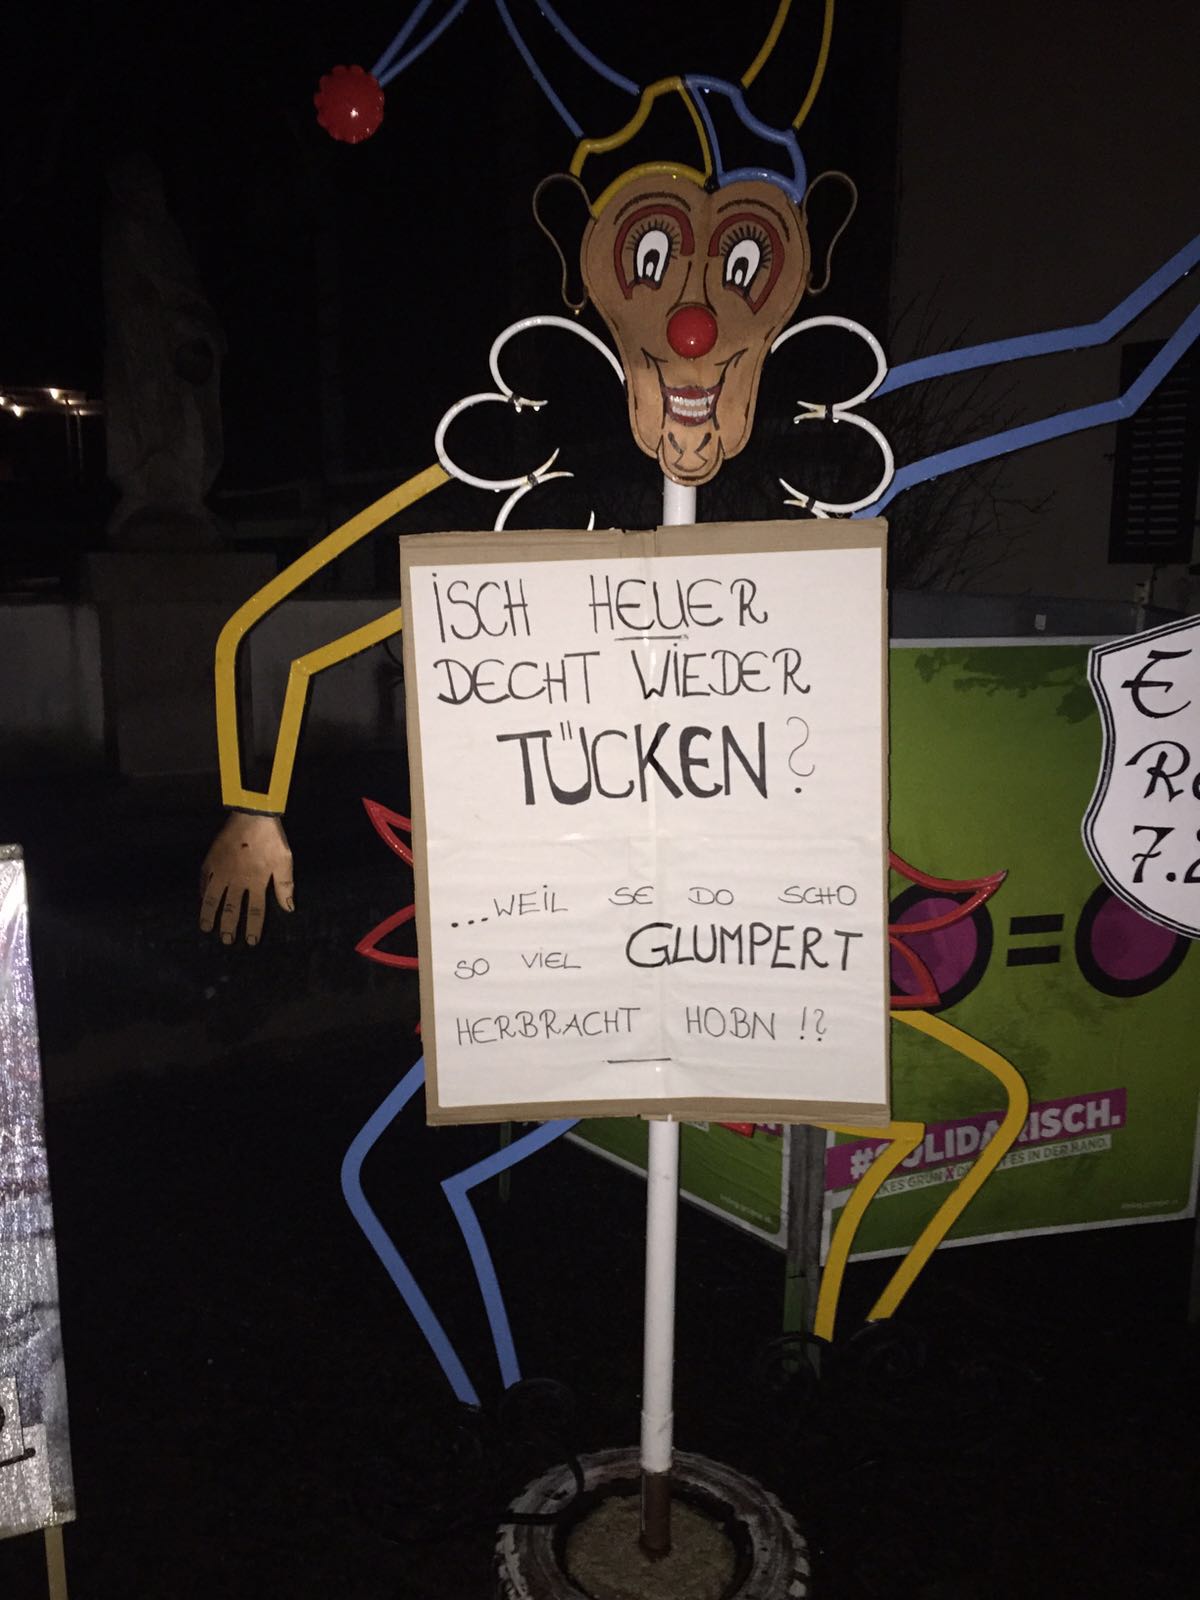 iSCH HEUER
DECHT WiEDER
TÜCKEN?
...WEiL SE DO SCHO
SO ViEL GLUMPERT
HERBRACHT HOBN !?
E
7.2
=
#SOLIDARISCH.
ES IN DER HAND.